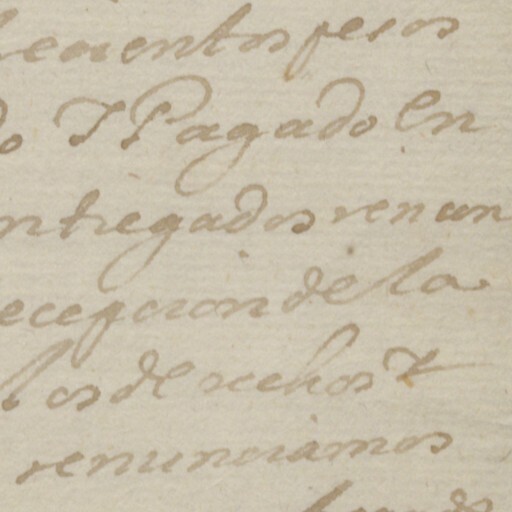 cientos pesos
do I Pagado En
ntregados renun
ecepcion de la
los derechos Y
renunciamos